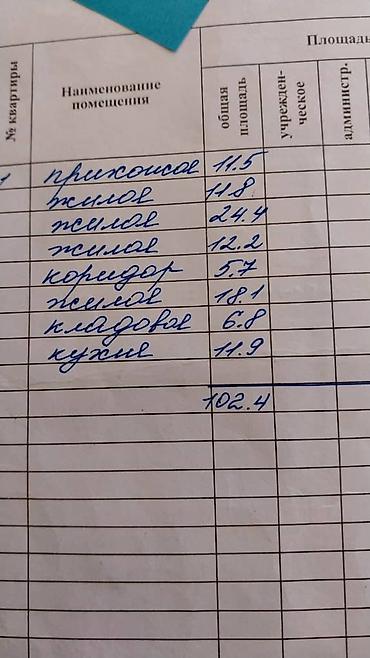 Площадь
№ квартиры
Наименование
помещения
общая
площадь
учрежден-
ческое
администр.
1 прихожая 11.5
жилая 11.8
жилая 24.4
жилая 12.2
коридор 5.7
жилая 18.1
кладовая 6.8
кухня 11.9
102.4